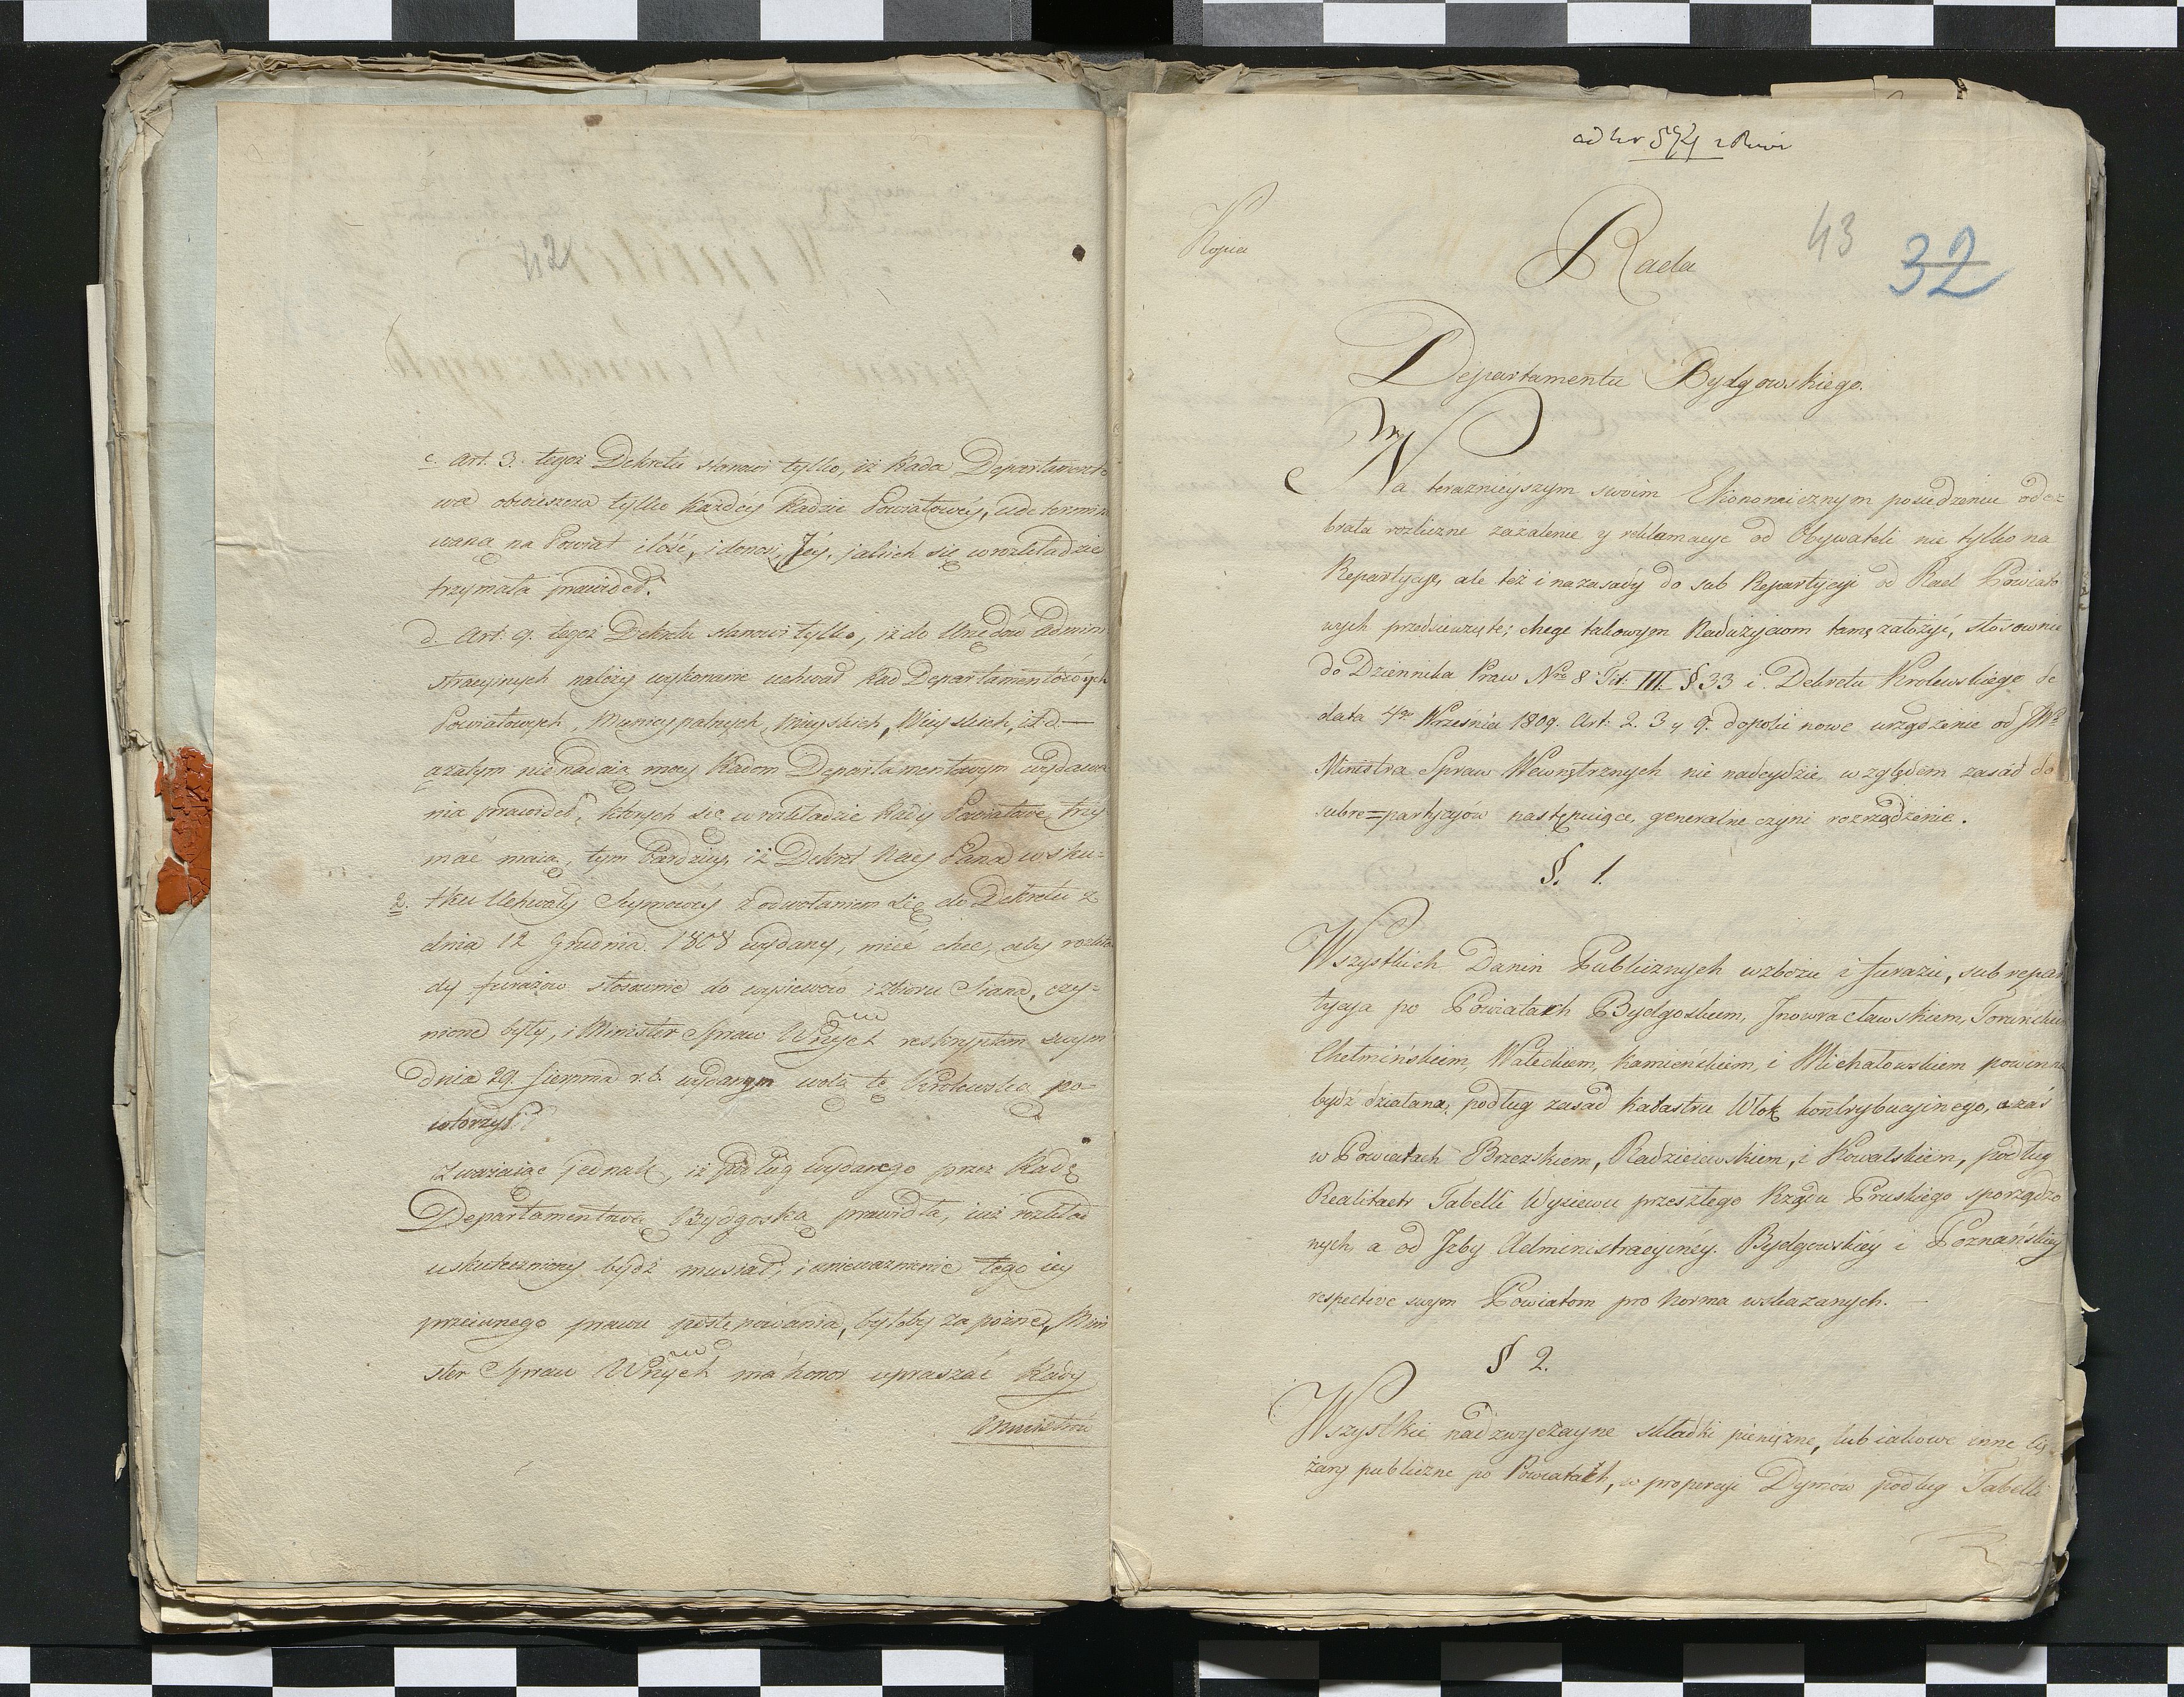 42
c. Art. 3. tegoż Dekretu stanowi tylko, iż Rada Departamento
wa obwieszcza tylko każdéy Radzie Powiatowéy, udetermino
waną na Powiat ilość, i donosi Jéy, jakich się w rozkładzie
trzymała prawideł.
d. Art. 9. tegoż Dekretu stanowi tylko, iż do Urzędów Admini
stracyinych należy wykonanie uchwał Rad Departamentowych
Powiatowych, Municypalnych, Mieyskich, Wieyskich, it.d.—
a zatym nie nadaią mocy Radom Departamentowym wydawa
nia prawideł, których się w rozkładzie Rady Powiatowe trzy
mać maią, tym bardziey, iż Dekret Nayj. Pana w sku=
2. tku Uchwały Seymowéy z odwołaniem się do Dekretu z
dnia 12 Grudnia 1808 wydany, mieć chce, aby rozkła
dy furażów stosownie do wysiewów i zbioru Siana, czy=
nione były, i Minister Spraw Wnych reskryptem swym
dnia 29. Sierpnia r.b. wydanym wolą tę Królewską po=
wtorzył.
Zważaiąc jednak, iż podług wydanego przez Radę
Departamentową Bydgoską prawidła, iuż rozkład
uskuteczniony bydź musiał, i unieważnienie tego iey
przeciwnego prawu postępowania, byłoby za poźne, Mini
ster Spraw Wnych ma honor upraszać Rady
Ministrów
43
32
Kopia
Rada
Departamentu Bydgowskiego.
Na teraznieyszym swoim Ekonomicznym posiedzeniu ode
brała rozliczne zażalenie y reklamacye od Obywateli nie tylko na
Repartycyę, ale też i na zasady do sub Repartycyi od Rad Powiato
wych przedsiewzięte; chcąc takowym Nadużyciom tamę założyć, stosownie
do Dziennika Praw Nro 8 Tit. III. § 33 i Dekretu Krolewskiego de
data 4go Września 1809. Art. 2. 3 y 9. dopoki nowe urządzenie od JWo
Ministra Spraw Wewnętrznych nie nadeydzie, względem zasad do
subre=partycyów następuiące, generalne czyni rozrządzenie.
§. 1.
Wszystkich Danin Publicznych w zbożu i furażu, sub repar
tycya po Powiatach Bydgoskiem, Jnowracławskiem, Toruńskiem
Chełmińskiem, Waleckiem, Kamieńskiem, i Michałowskiem powinna
bydź działana, podług zasad Katastru Włok kontrybucyinego, a zaś
w Powiatach Brzeskiem, Radziejewskiem, i Kowalskiem, podług
Realitaets Tabelli Wysiewu przeszłego Rządu Pruskiego sporządzo
nych, a od Jzby Administracyinéy. Bydgowskiéy i Poznańskiey
respective swym Powiatom pro Norma wskazanych. —
§ 2.
Wszystkie nadzwyczayne składki pieniężne, lub iakowe inne cię
żary publiczne po Powiatach, w proporcyi Dymów podług Tabelli